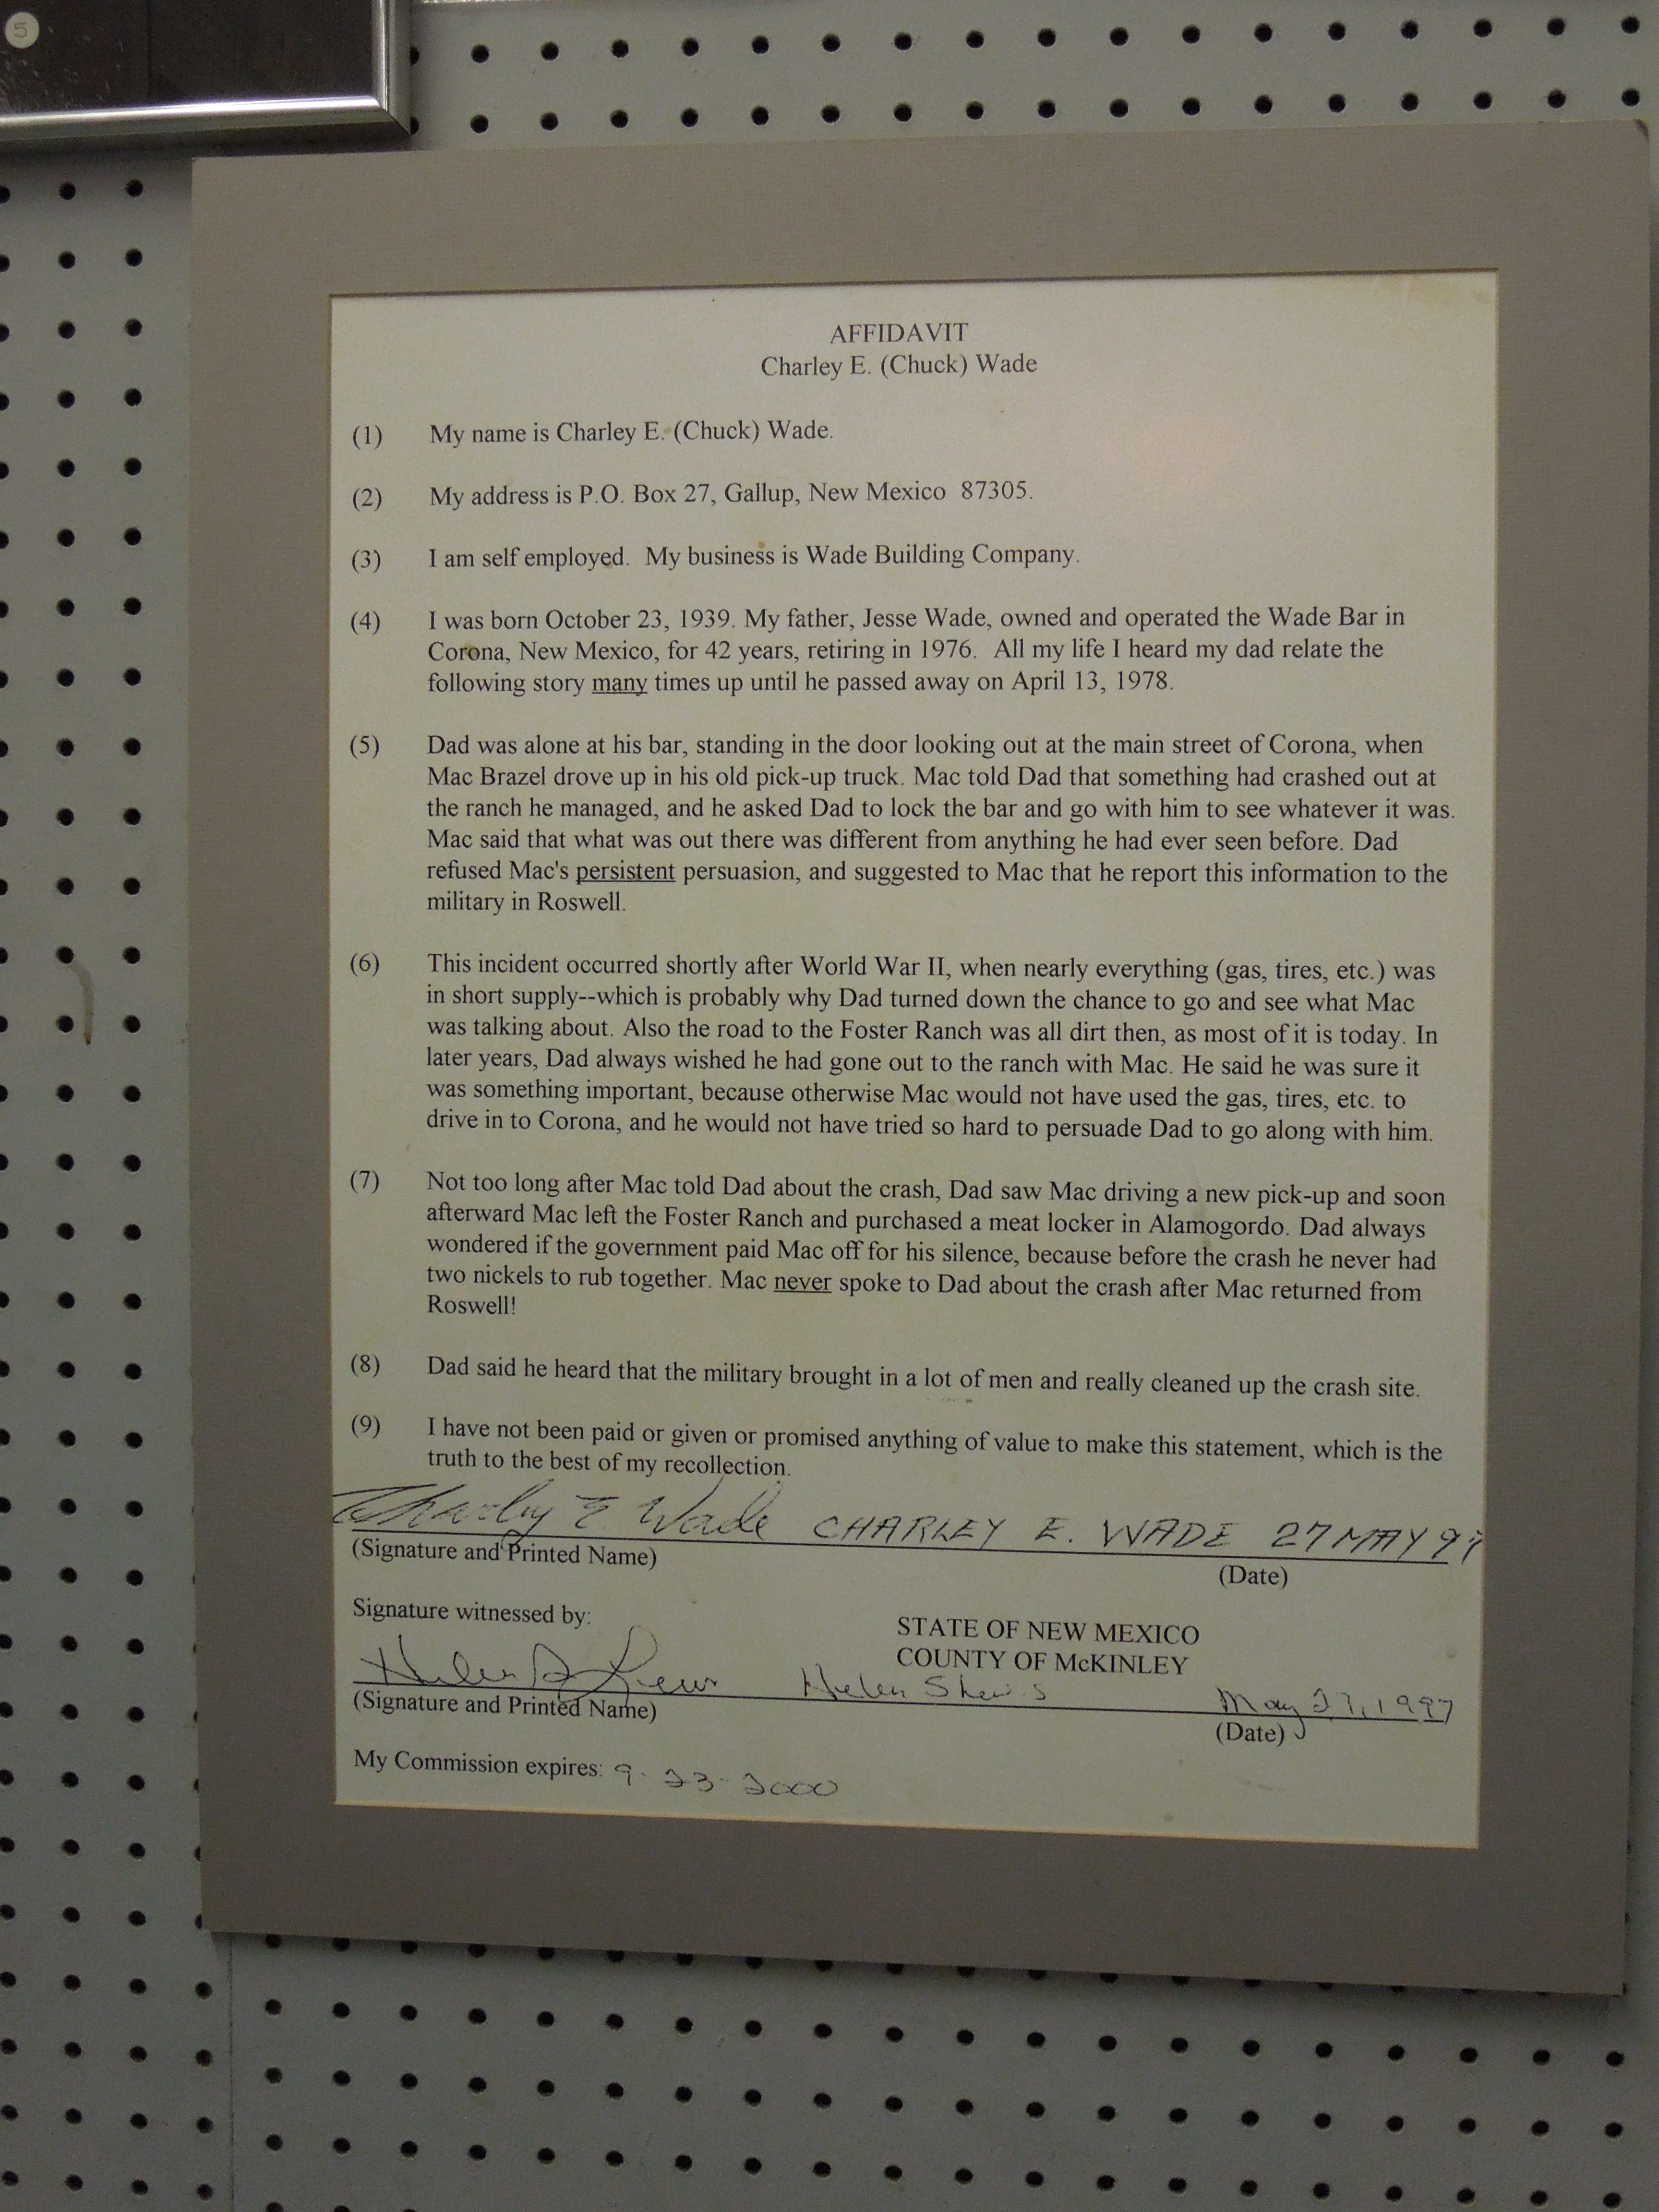 5
AFFIDAVIT
Charley E. (Chuck) Wade
(1) My name is Charley E. (Chuck) Wade.
(2) My address is P.O. Box 27, Gallup, New Mexico 87305.
(3) I am self employed. My business is Wade Building Company.
(4) I was born October 23, 1939. My father, Jesse Wade, owned and operated the Wade Bar in
Corona, New Mexico, for 42 years, retiring in 1976. All my life I heard my dad relate the
following story many times up until he passed away on April 13, 1978.
(5) Dad was alone at his bar, standing in the door looking out at the main street of Corona, when
Mac Brazel drove up in his old pick-up truck. Mac told Dad that something had crashed out at
the ranch he managed, and he asked Dad to lock the bar and go with him to see whatever it was.
Mac said that what was out there was different from anything he had ever seen before. Dad
refused Mac's persistent persuasion, and suggested to Mac that he report this information to the
military in Roswell.
(6) This incident occurred shortly after World War II, when nearly everything (gas, tires, etc.) was
in short supply--which is probably why Dad turned down the chance to go and see what Mac
was talking about. Also the road to the Foster Ranch was all dirt then, as most of it is today. In
later years, Dad always wished he had gone out to the ranch with Mac. He said he was sure it
was something important, because otherwise Mac would not have used the gas, tires, etc. to
drive in to Corona, and he would not have tried so hard to persuade Dad to go along with him.
(7) Not too long after Mac told Dad about the crash, Dad saw Mac driving a new pick-up and soon
afterward Mac left the Foster Ranch and purchased a meat locker in Alamogordo. Dad always
wondered if the government paid Mac off for his silence, because before the crash he never had
two nickels to rub together. Mac never spoke to Dad about the crash after Mac returned from
Roswell!
(8) Dad said he heard that the military brought in a lot of men and really cleaned up the crash site.
(9) I have not been paid or given or promised anything of value to make this statement, which is the
truth to the best of my recollection.
Charley E. Wade CHARLEY E. WADE 27 MAY 97
(Signature and Printed Name) (Date)
Signature witnessed by:
STATE OF NEW MEXICO
COUNTY OF McKINLEY
Helen Helen May 27, 1997
(Signature and Printed Name) (Date)
My Commission expires: 9-23-2000